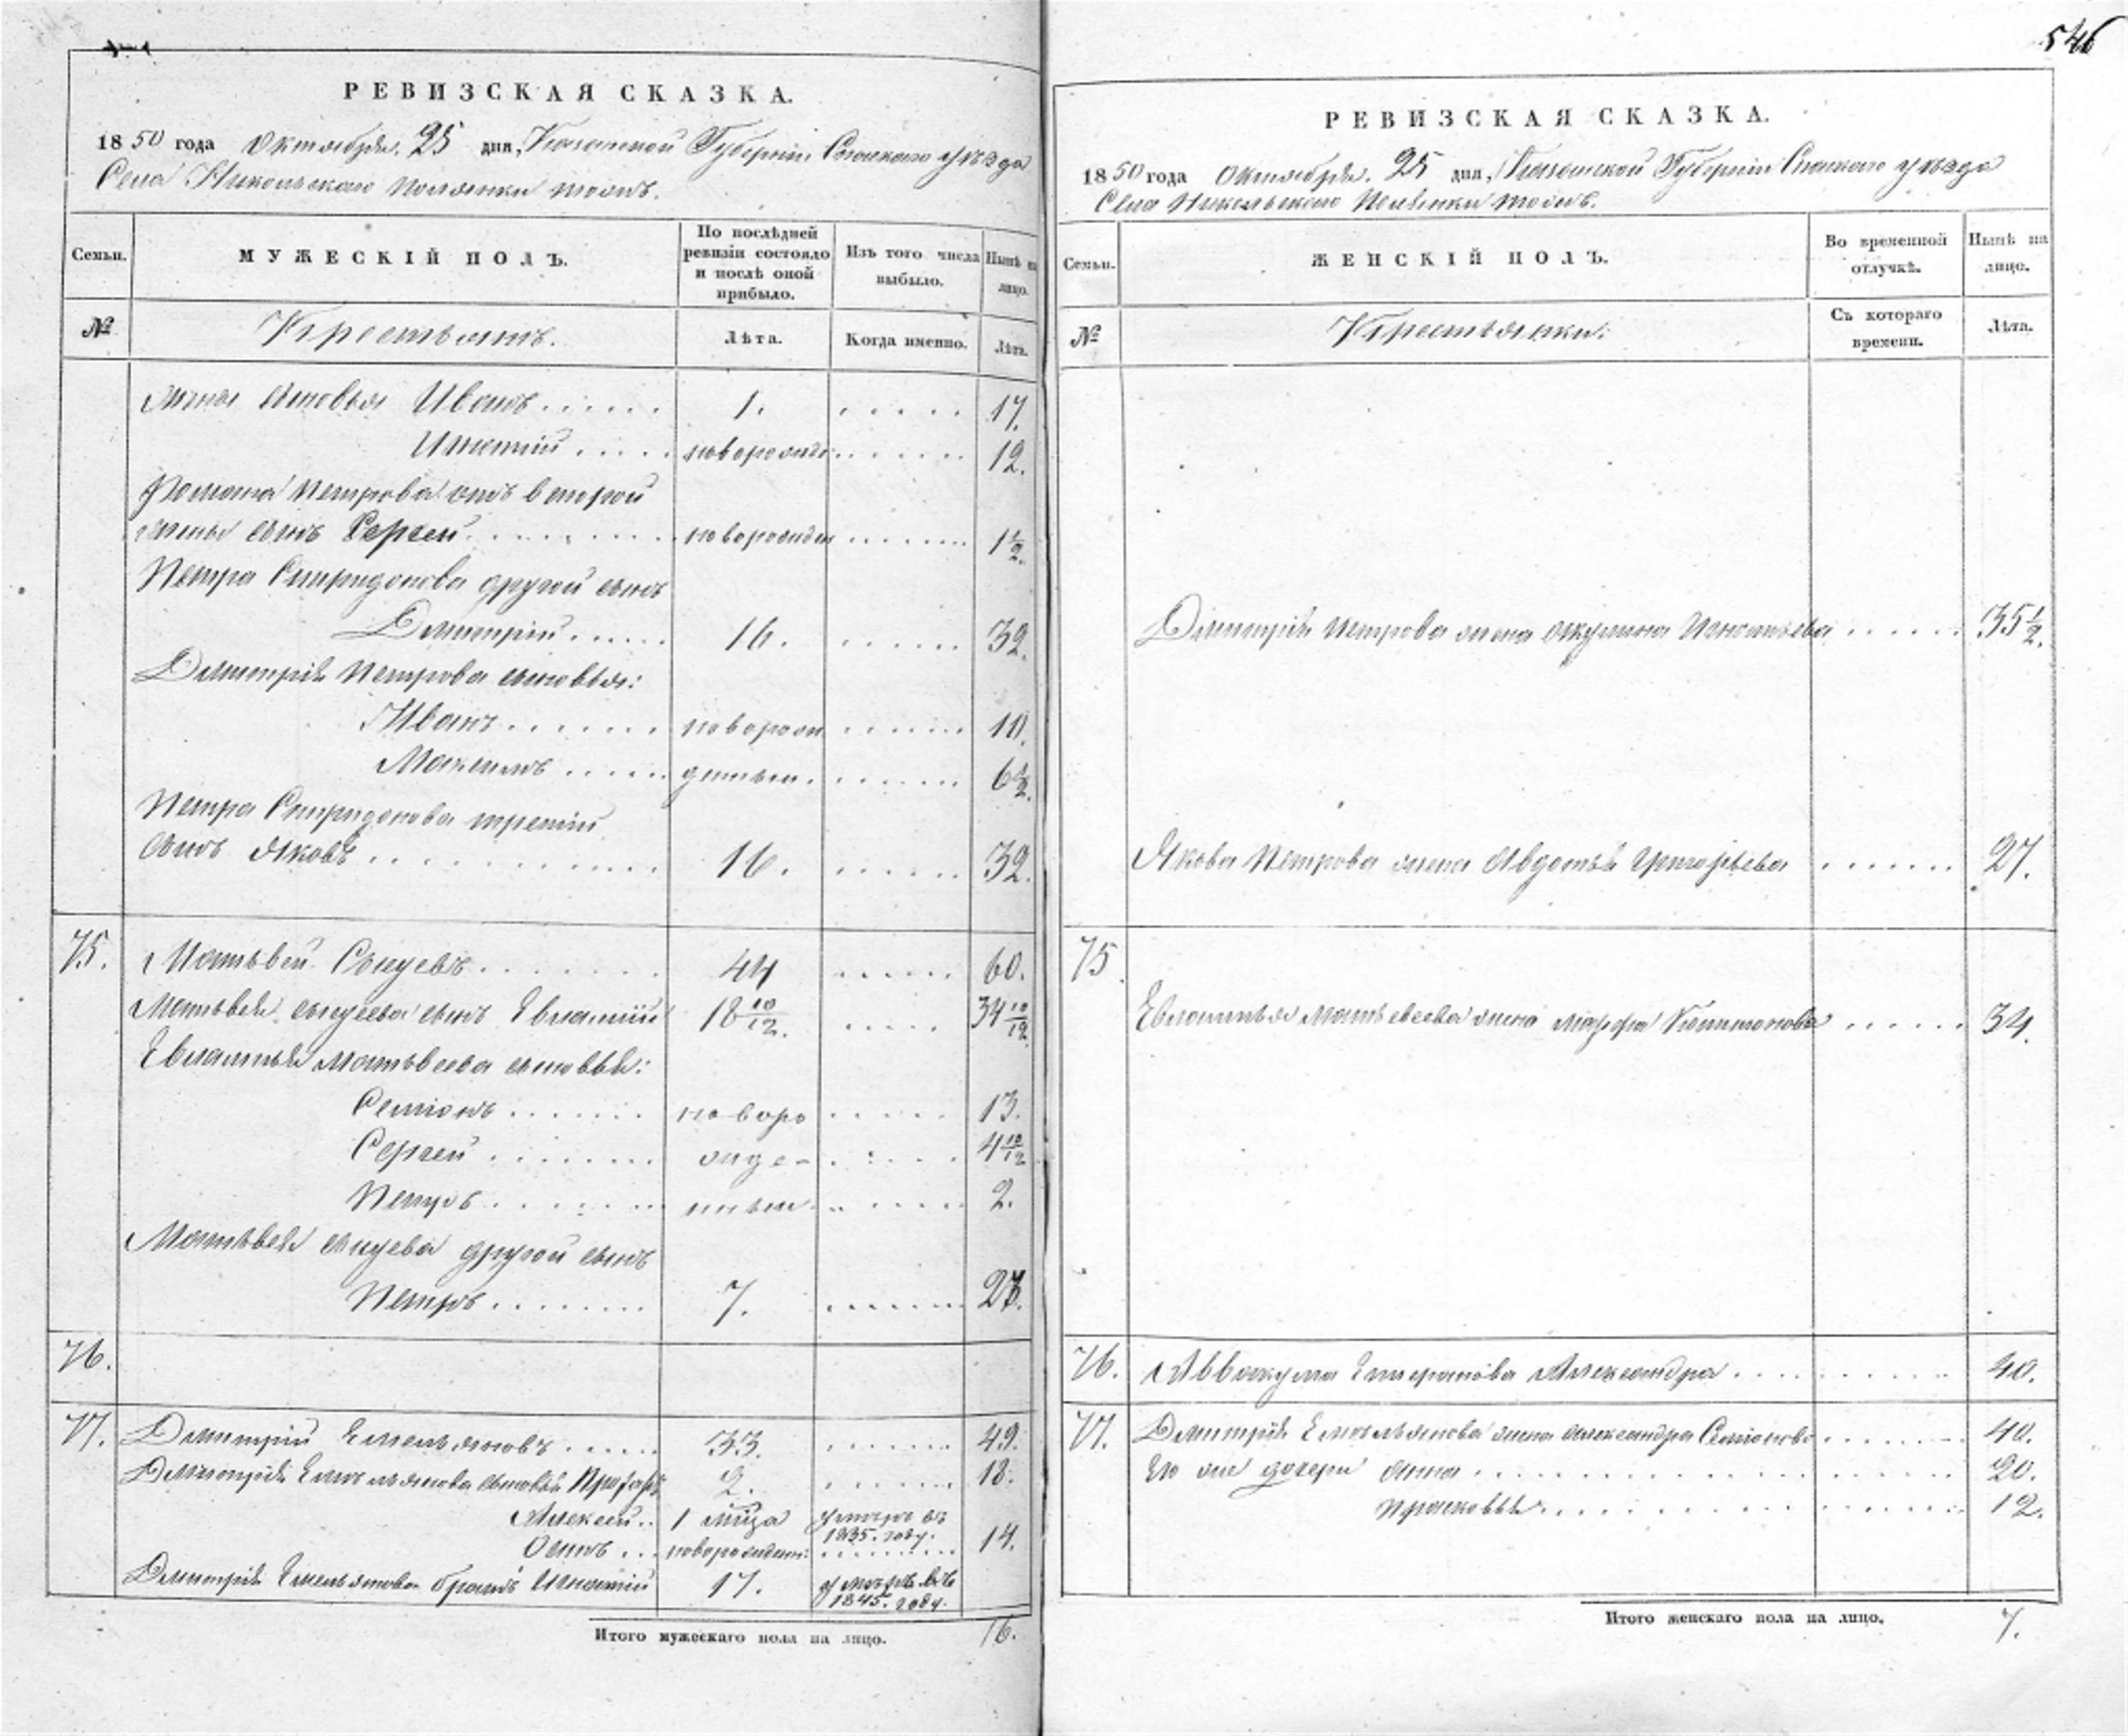 546
РЕВИЗСКАЯ СКАЗКА.
1850 года Октября 25 дня, Казанской Губернии Спаскаго уезда
Села Никольскаго Полянки тожъ.
Семьи.
МУЖЕСКІЙ ПОЛЪ.
По послѣдней ревизіи состояло и послѣ оной прибыло.
Изъ того числа выбыло.
Нынѣ на лицо.
№
Крестьянъ.
Лѣта.
Когда именно.
Лѣта.
сыновья Иванъ 1. 17.
Игнатий новорожде 12.
Романа Петрова отъ второй
жены сынъ Сергей новорожден 1 1/2.
Петра Спиридонова другой сынъ
Дмитрий 16. 32.
Дмитрія Петрова сыновья:
Иванъ новорож 10.
Максимъ 6 1/2.
Петра Спиридонова третий
сынъ Яковъ 16. 32.
75. Матвей 44 60.
Матвея сынъ Евлампий 18 10/12. 34 10/12.
Евлампия Матвеева сыновья:
Семіонъ новоро 13.
Сергей жде- 4 10/12
Петръ 2.
Матвея другой сынъ
Петръ 7. 23.
76.
77. Дмитрий Емельяновъ 33. 49.
Дмитрія Емельянова сыновья 2. 18.
Алексей 1 м-ца умеръ въ 1835. году.
Осипъ новорожден: 14.
Дмитрія Емельянова братъ Игнатий 17. умеръ въ 1845. году.
Итого мужескаго пола на лицо. 16.
РЕВИЗСКАЯ СКАЗКА.
1850 года Октября 25 дня, Казанской Губернии Спаскаго уезда
Села Никольскаго Полянки тожъ.
Семьи.
ЖЕНСКІЙ ПОЛЪ.
Во временной отлучкѣ.
Нынѣ на лицо.
№
Крестьянки:
Съ котораго времени.
Лѣта.
Дмитрія Петрова жена Акулина Игнатьева 35 1/2.
Якова Петрова жена Авдотья Григорьева 27.
75
Евлампия Матвеева жена Марфа 34.
76. Аввакума Александра 40.
77. Дмитрія Емельянова жена Александра Семіонова 40.
Ево же дочери Анна 20.
Прасковья 12.
Итого женскаго пола на лицо. 7.